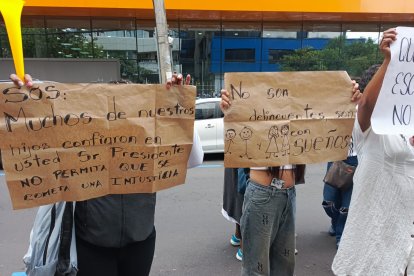 SOS:
Muchos de nuestros
hijos confiaron en
usted Sr. Presidente
NO PERMITA QUE SE
COMETA UNA INJUSTICIA
No son
delincuentes son
con
SUEÑOS
NO